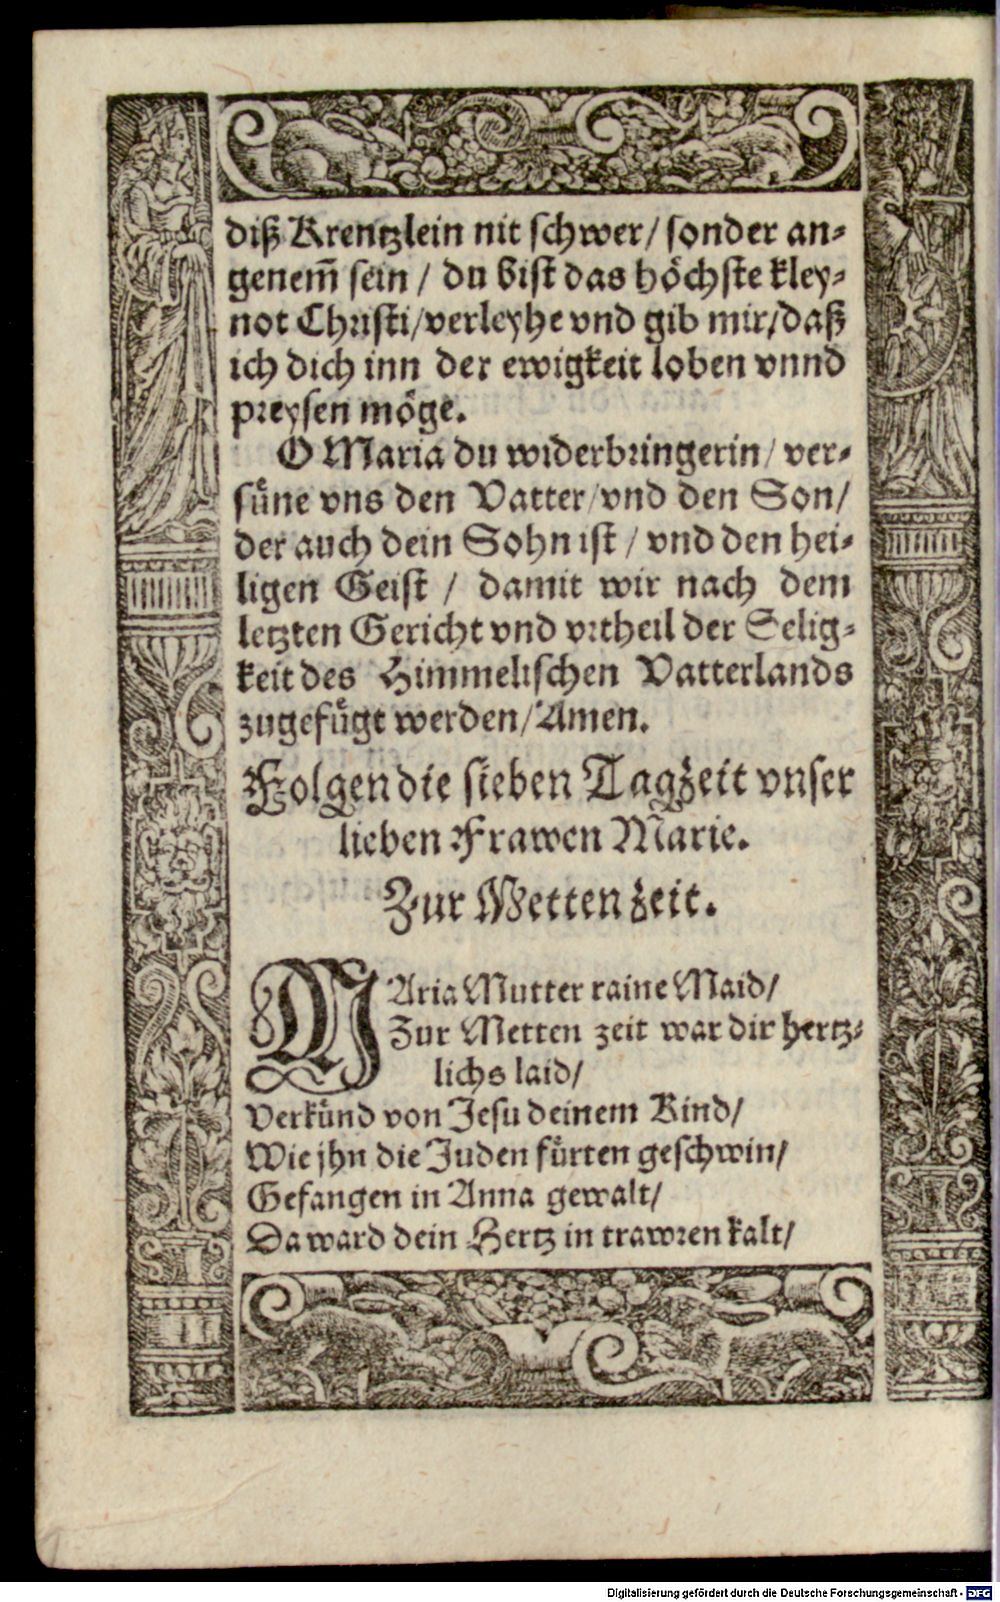 diß Krentzlein nit schwer/ sonder an-
genem̃ sein / du bist das höchste kley-
not Christi/verleyhe vnd gib mir/daß
ich dich inn der ewigkeit loben vnnd
preysen möge.
O Maria du widerbringerin/ ver-
süne vns den Vatter/vnd den Son/
der auch dein Sohn ist / vnd den hei-
ligen Geist / damit wir nach dem
letzten Gericht vnd vrtheil der Selig-
keit des Himmelischen Vatterlands
zugefügt werden/Amen.
Folgen die sieben Tagzeit vnser
lieben Frawen Marie.
Zur Metten zeit.
MAria Mutter raine Maid/
Zur Metten zeit war dir hertz-
lichs laid/
Verkünd von Jesu deinem Kind/
Wie jhn die Juden fürten geschwin/
Gefangen in Anna gewalt/
Da ward dein Hertz in trawren kalt/
Digitalisierung gefördert durch die Deutsche Forschungsgemeinschaft - DFG